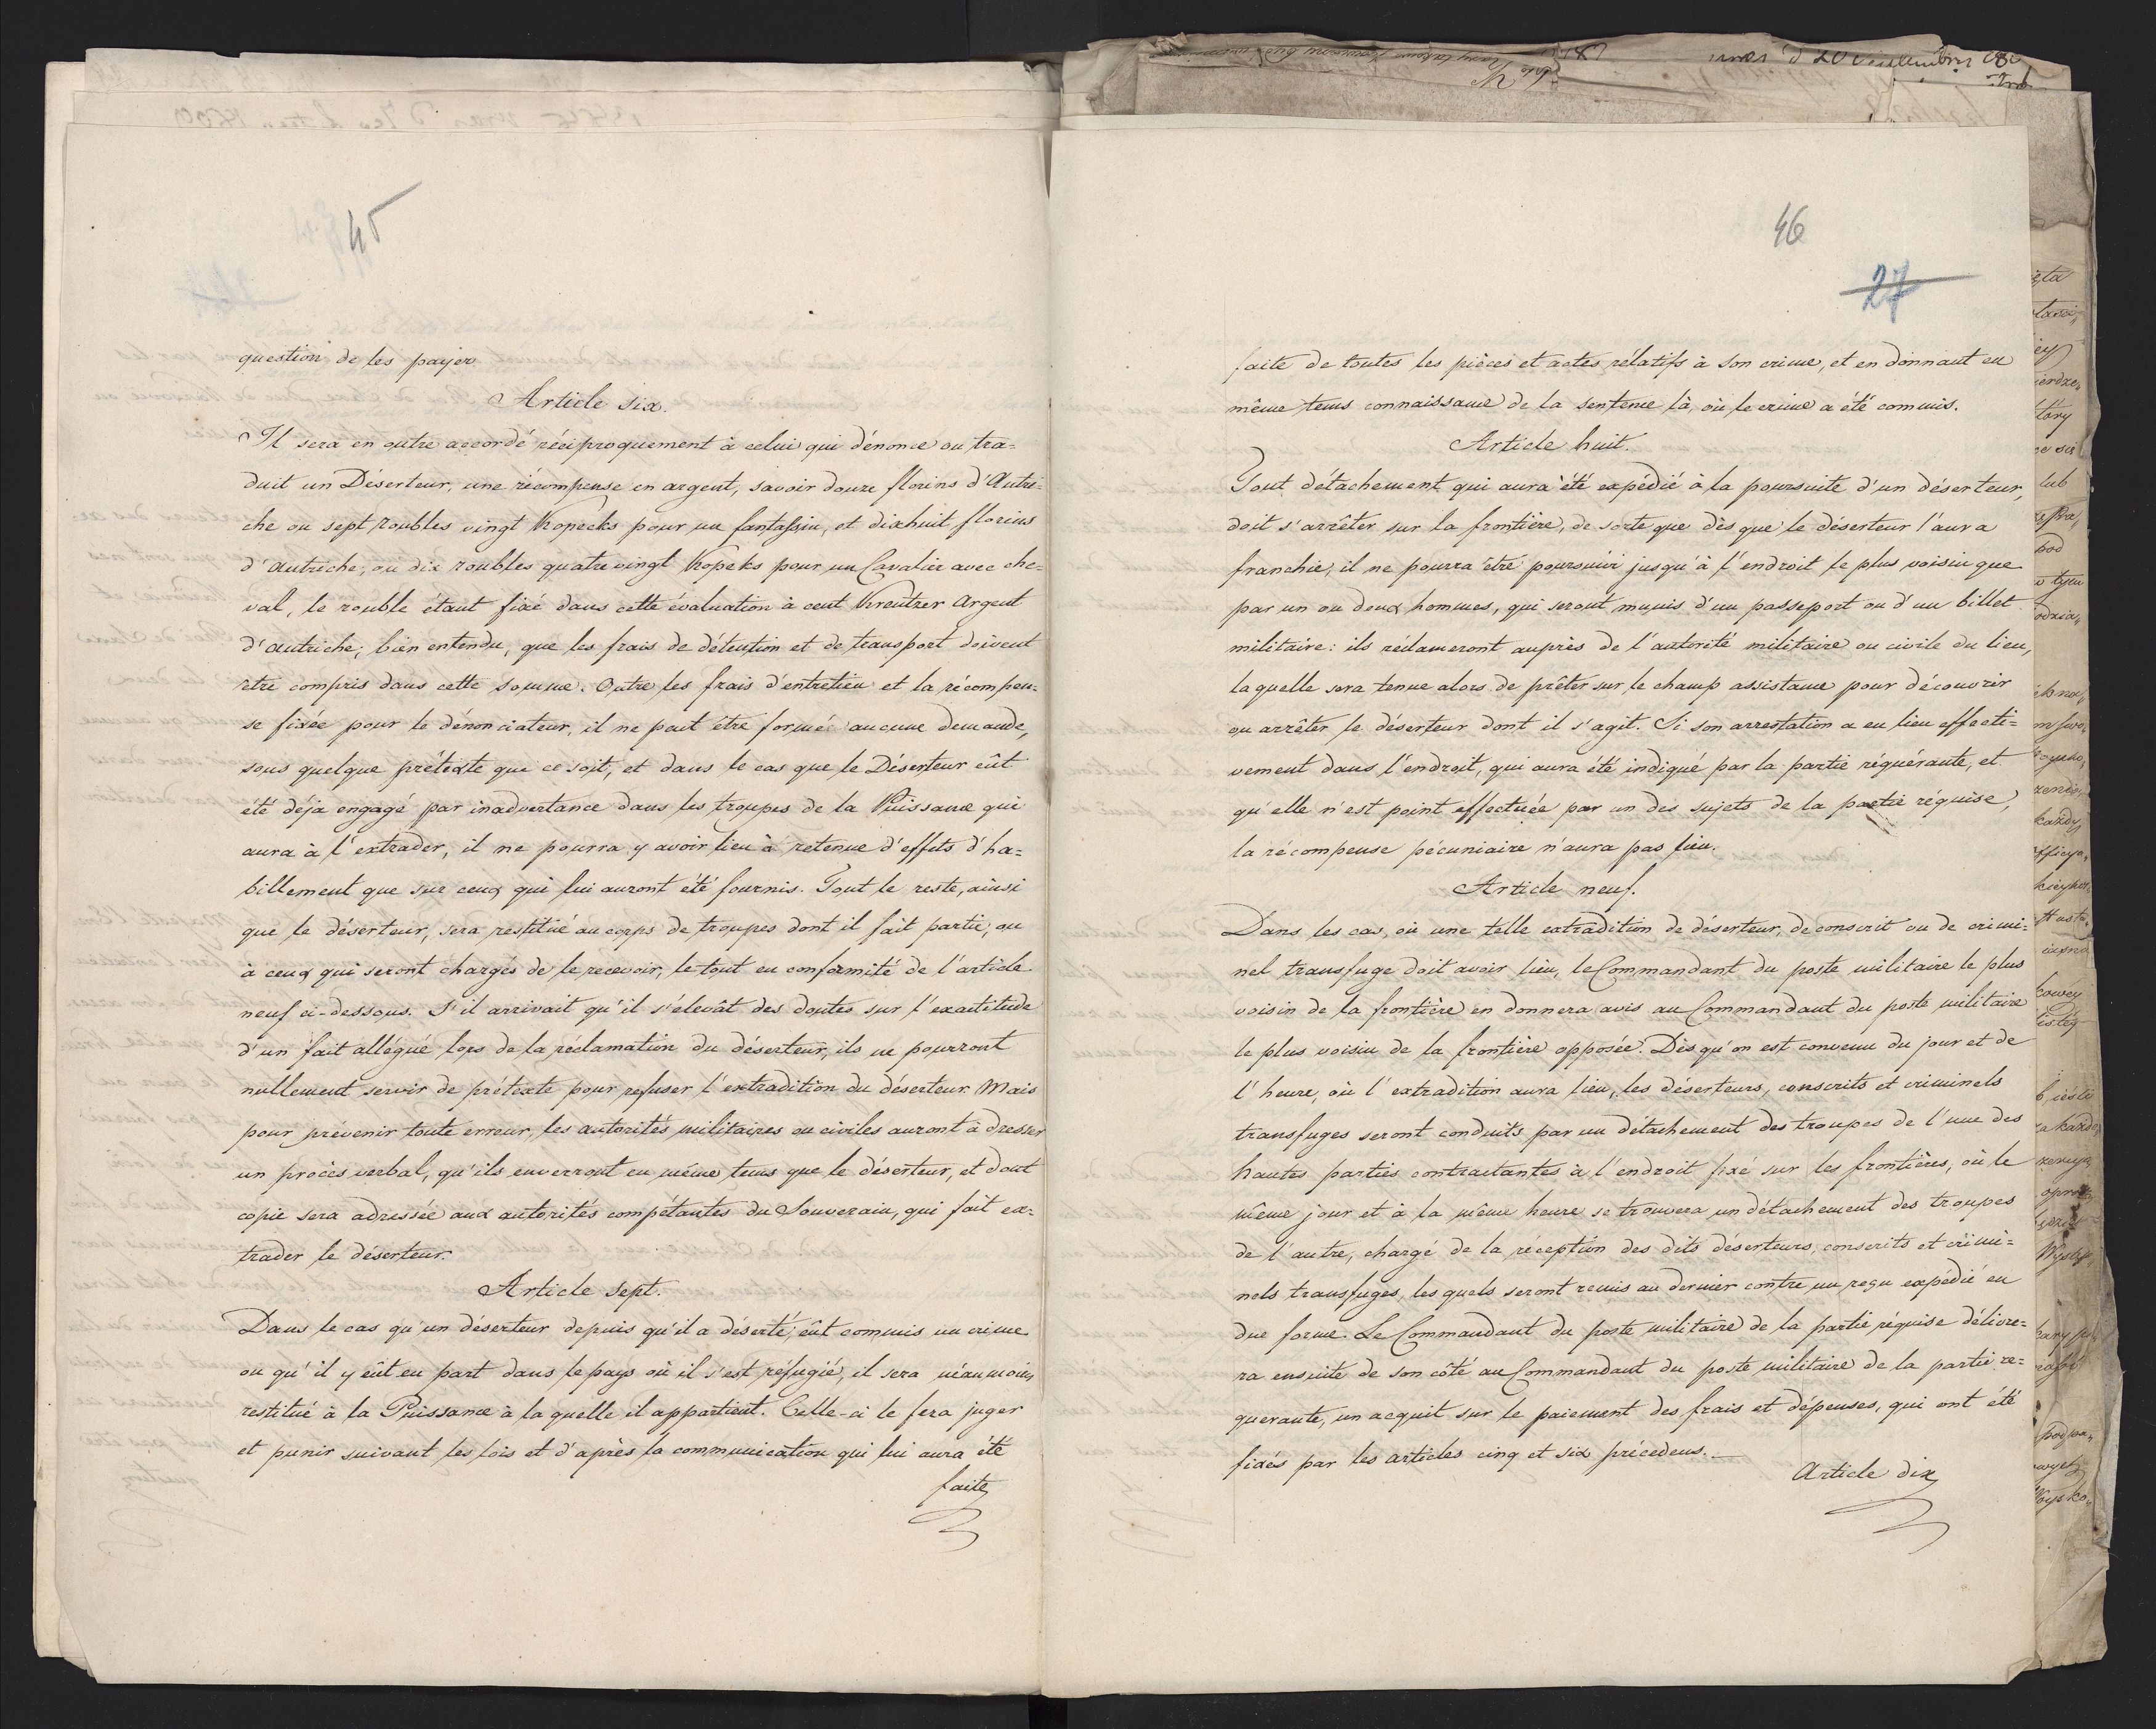 45
question de les payer
Article six.
Il sera en outre accordé réciproquement à celui qui dénonce ou tra=
duit un Déserteur, une récompense en argent, savoir douze florins d'Autri=
che ou sept roubles vingt Kopecks pour un fantassin, et dixhuit florins
d'Autriche, ou dix roubles quatrevingt Kopeks pour un Cavalier avec che=
val, le rouble étant fixé dans cette évaluation à cent Kreutzer Argent
d'Autriche; bien entendu, que les frais de détention et de transport doivent
être compris dans cette somme. Outre les frais d'entretien et la récompen=
se fixée pour le dénonciateur, il ne peut être formée aucune demande,
sous quelque prétexte que ce soit, et dans le cas que le Déserteur eût
été déja engagé par inadvertance dans les troupes de la Puissance qui
aura à l'extrader, il ne pourra y avoir lieu à retenue d'effets d'ha=
billement que sur ceux qui lui auront été fournis. Tout le reste, ainsi
que le déserteur, sera restitué au corps de troupes dont il fait partie, ou
à ceux qui seront chargés de le recevoir, le tout en conformité de l'article
neuf ci-dessous. S'il arrivait qu'il s'élevât des doutes sur l'exactitude
d'un fait allégué lors de la réclamation du déserteur, ils ne pourront
nullement servir de prétexte pour refuser l'extradition du déserteur. Mais
pour prévenir toute erreur, les autorités militaires ou civiles auront à dresser
un procès verbal, qu'ils enverront en même tems que le déserteur, et dont
copie sera adressée aux autorités compétantes du Souverain, qui fait ex=
trader le déserteur.
Article sept.
Dans le cas qu'un déserteur depuis qu'il a déserté, eût commis un crime
ou qu'il y eût eu part dans le pays où il s'est réfugié, il sera néanmoins
restitué à la Puissance à laquelle il appartient. Celle-ci le fera juger
et punir suivant les lois et d'après la communication qui lui aura été
faite
46
27
faite de toutes les pièces et actes rélatifs à son crime, et en donnant en
même tems connaissance de la sentence là, où le crime a été commis.
Article huit.
Tout détachement qui aura été expédié à la poursuite d'un déserteur,
doit s'arrêter sur la frontière, de sorte que dès que le déserteur l'aura
franchie, il ne pourra être poursuivi jusqu'à l'endroit le plus voisin que
par un ou deux hommes, qui seront munis d'un passeport ou d'un billet
militaire: ils réclameront auprès de l'autorité militaire ou civile du lieu,
laquelle sera tenue alors de prêter sur le champ assistance pour découvrir
ou arrêter le déserteur dont il s'agit. Si son arrestation a eu lieu effecti=
vement dans l'endroit, qui aura été indiqué par la partie réquérante, et
qu'elle n'est point efféctuée par un des sujets de la partie réquise,
la récompense pécuniaire n'aura pas lieu.
Article neuf.
Dans les cas, où une telle extradition de déserteur, de conscrit ou de crimi=
nel transfuge doit avoir lieu, le Commandant du poste militaire le plus
voisin de la frontière en donnera avis au Commandant du poste militaire
le plus voisin de la frontière opposée. Dès qu'on est convenu du jour et de
l'heure, où l'extradition aura lieu, les déserteurs, conscrits et criminels
transfuges seront conduits par un détachement des troupes de l'une des
hautes parties contractantes à l'endroit fixé sur les frontières, où le
même jour et à la même heure se trouvera un détachement des troupes
de l'autre, chargé de la réception des dits déserteurs, conscrits et crimi=
nels transfuges, lesquels seront remis au dernier contre un reçu expédié en
due forme. Le Commandant du poste militaire de la partie réquise délivre=
ra ensuite de son côté au Commandant du poste militaire de la partie re=
querante, un acquit sur le paiement des frais et dépenses, qui ont été
fixés par les articles cinq et six précedens.
Article dix